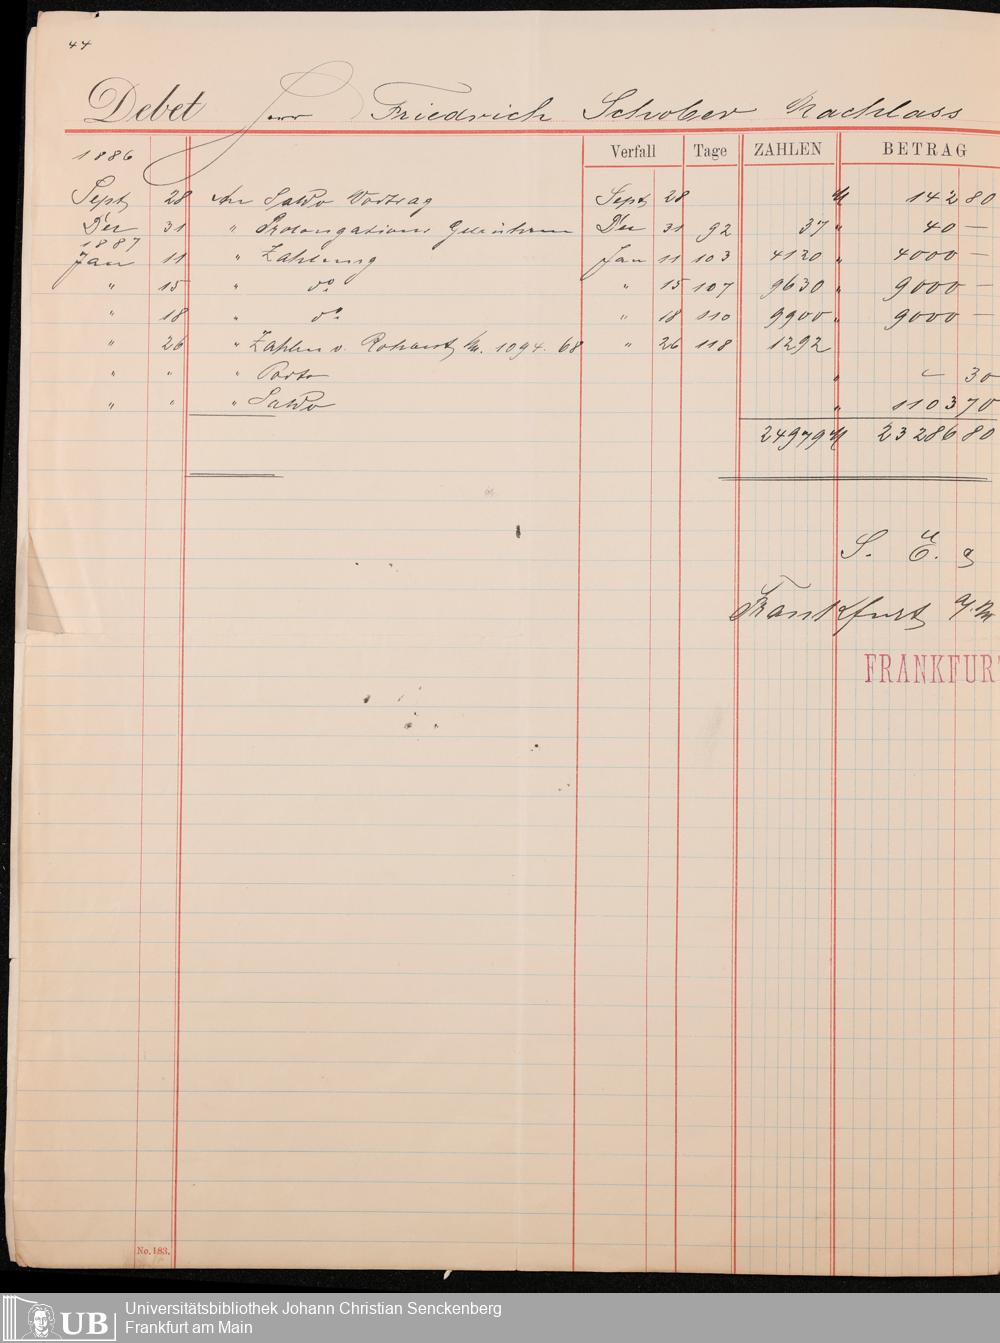 44
Debet Herr Friedrich Schober Nachlass
Verfall Tage ZAHLEN BETRAG
1886
Sept 28 An Saldo Vortrag Sept 28 M 142 80
Dec 31 " Prolongations Gebühren Dec 31 92 37 " 40 —
1887
Jan 11 " Zahlung Jan 11 103 4120 " 4000 —
" 15 " do " 15 107 9630 " 9000 —
" 18 " do " 18 110 9900 " 9000 —
" 26 " Zahlen v. M. 1094. 68 " 26 118 1292
" " " Porto " — 30
" " " Saldo " 1103 70
24979 M 23286 80
S. E.
Frankfurt a/M
FRANKFUR
No. 183.
Universitätsbibliothek Johann Christian Senckenberg
UB Frankfurt am Main